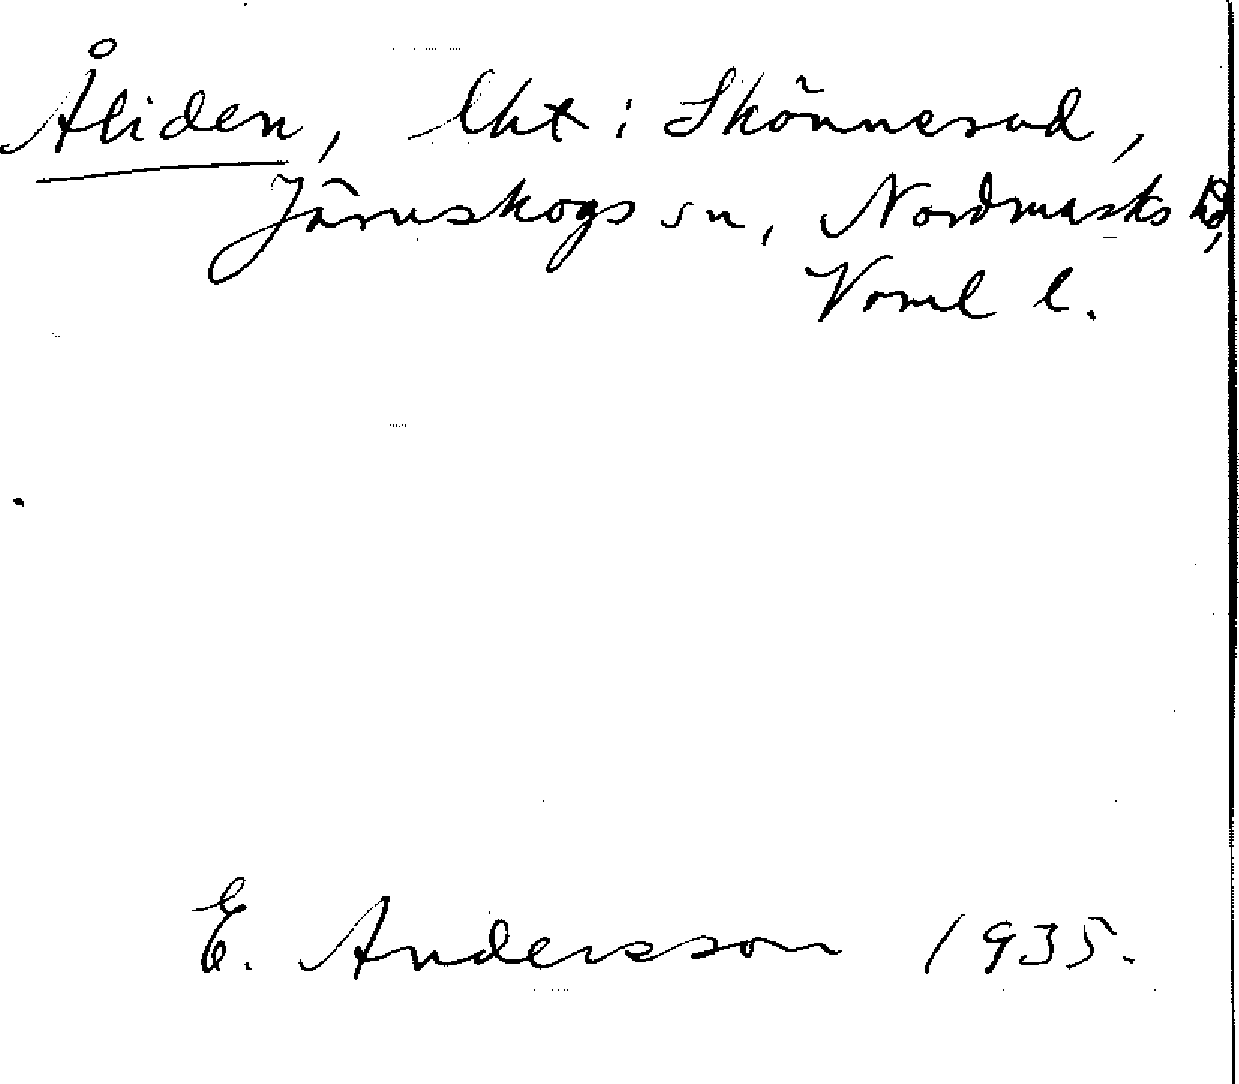 Åliden, lht i Skönnerud,
Järnskogs sn, Nordmarks hd,
Värml l.
E. Andersson 1935.